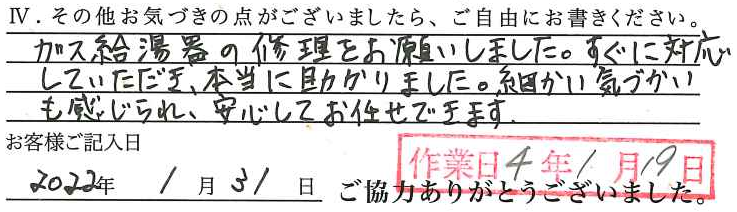 Ⅳ．その他お気づきの点がございましたら、ご自由にお書きください。
ガス給湯器の修理をお願いしました。すぐに対応
していただき、本当に助かりました。細かい気づかい
も感じられ、安心してお任せできます.
お客様ご記入日
作業日4年1月19日
2022年 1月31日 ご協力ありがとうございました。